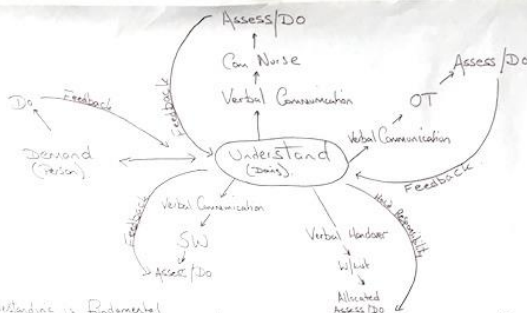 Assess/Do
Com Nurse
Verbal Communication
Feedback
Assess/Do
OT
Verbal Communication
Feedback
Do
Feedback
Demand
(Person)
Understand
Verbal Communication
SW
Assess/Do
Feedback
Verbal Handover
W/List
Allocated
Assess/Do
Hold Responsibility
is Fundamental